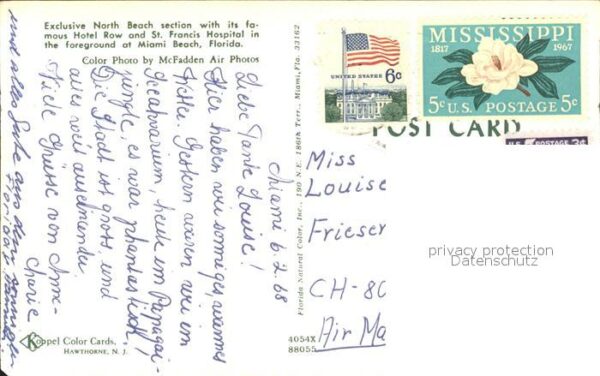 Exclusive North Beach section with its fa-
mous Hotel Row and St. Francis Hospital in
the foreground at Miami Beach, Florida.
Color Photo by McFadden Air Photos
UNITED STATES
6c
MISSISSIPPI
1817 1967
5c U.S. POSTAGE 5c
U.S. POSTAGE 3c
POST CARD
Miami 6.2.68
Liebe Tante
Louise!
Hier haben wir sonniges, warmes
Wetter. Gestern waren wir im
Seaquarium, heute im Papagei-
jungle, es war phantastisch!
Die Stadt ist gross, und
alles weit auseinander
Viele Grüsse von Anne-
Marie
und alles Gute aus dem
Florida
Florida Natural Color, Inc., 190 N.E. 186th Terr., Miami, Fla. 33162
Miss
Louise
Frieser
CH-80
Air Ma
privacy protection
Datenschutz
Koppel Color Cards.
HAWTHORNE, N. J.
4054X
88055